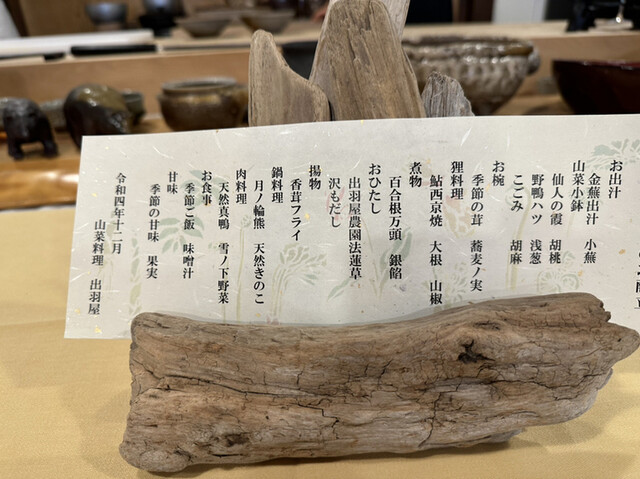 お出汁
金蕪出汁 小蕪
山菜小鉢
仙人の霞 胡桃
野鴨ハツ 浅葱
こごみ 胡麻
お椀
季節の茸 蕎麦ノ実
狸料理
鮎西京焼 大根 山椒
煮物
百合根万頭 銀餡
おひたし
出羽屋農園法蓮草
沢もだし
揚物
香茸フライ
鍋料理
月ノ輪熊 天然きのこ
肉料理
天然真鴨 雪ノ下野菜
お食事
季節ご飯 味噌汁
甘味
季節の甘味 果実
令和四年十二月
山菜料理 出羽屋